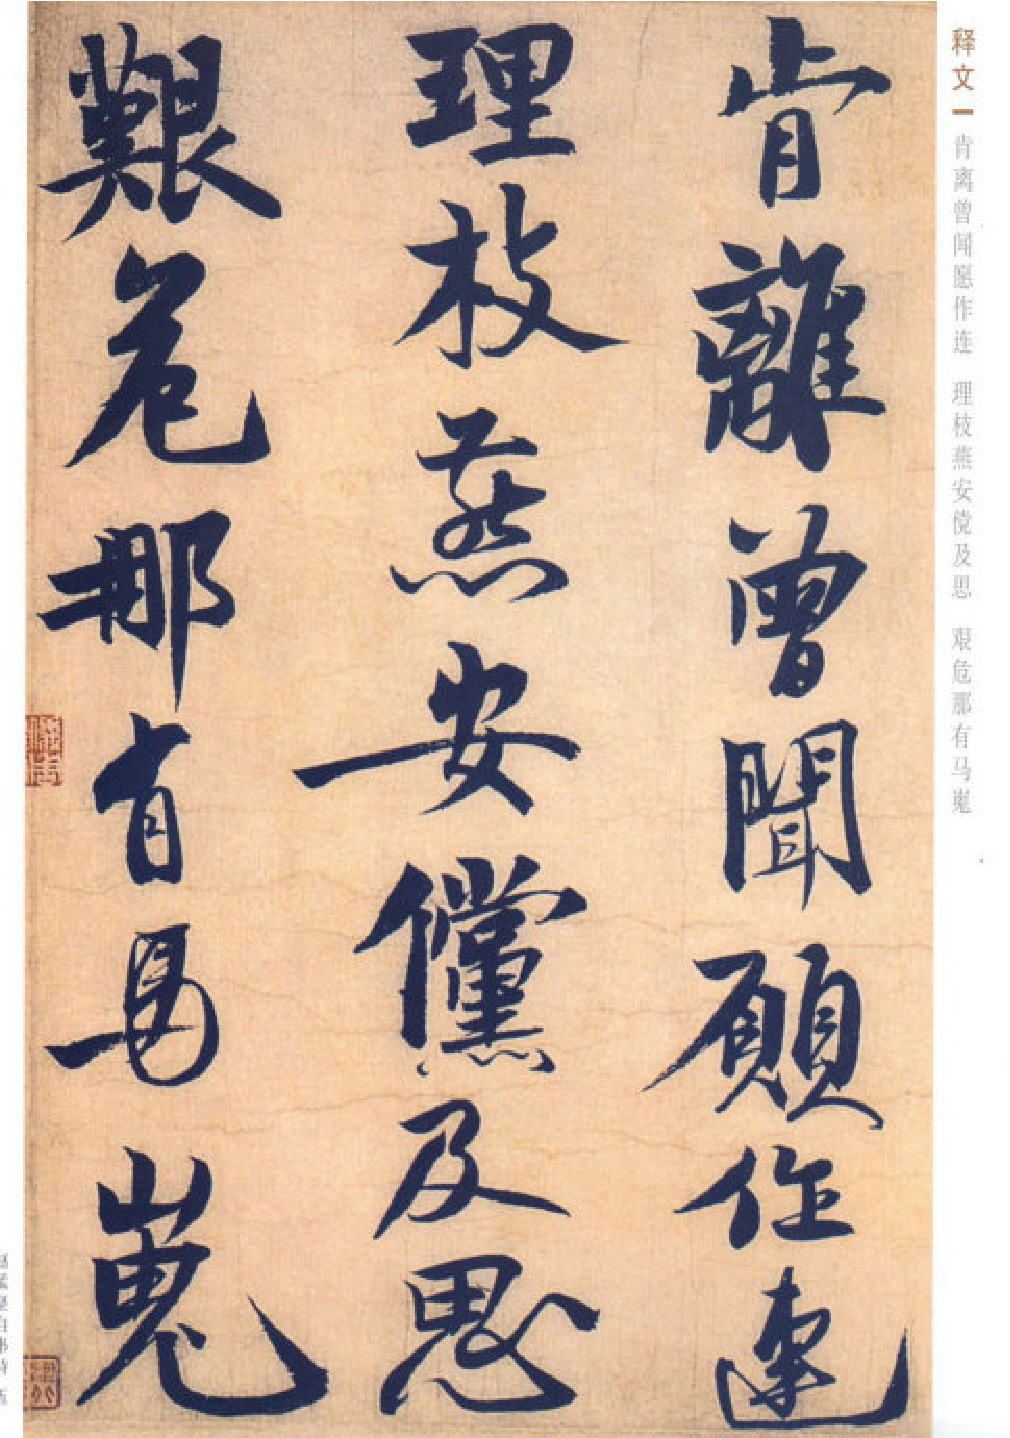 肯離曾聞願作連
理枝燕安儻及思
艱危那有馬嵬
释文
肯离曾闻愿作连 理枝燕安傥及思 艰危那有马嵬